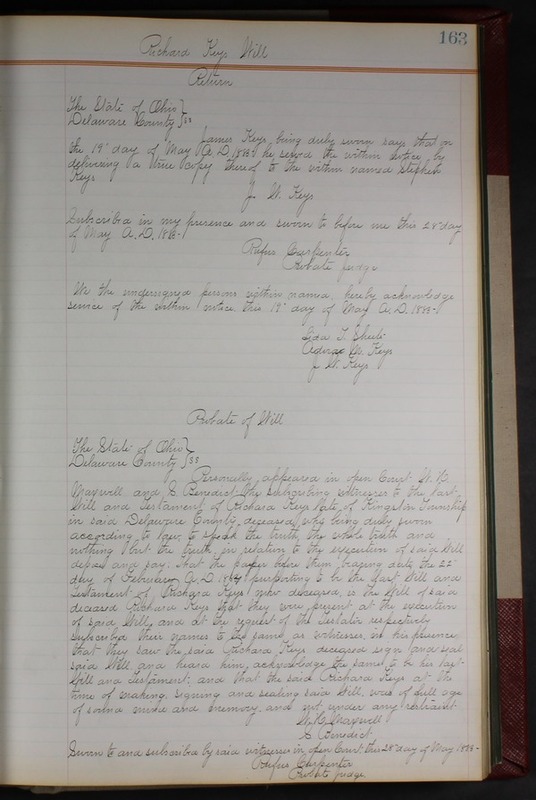 163
Richard Keys Will
Return
The State of Ohio }
Delaware County } ss
James Keys, being duly sworn says that on
the 19" day of May A.D. 1888 he served the within notice by
delivering a true copy thereof to the within named Stephen
Keys
J W. Keys
Subscribed in my presence and sworn to before me this 28" day
of May A.D. 1888-
Rufus Carpenter
Probate judge
We the undersigned persons within named, hereby acknowledge
service of the within notice this 19" day of May A.D. 1888-
Lida T.
Keys
J. W. Keys
Probate of Will
The State of Ohio }
Delaware County } ss
Personally appeared in open Court W. H.
Maxwell and S Benedict the subscribing witnesses to the last
Will and Testament of Richard Keys late of Kingston Township
in said Delaware County, deceased, who being duly sworn
according to law, to speak the truth, the whole truth and
nothing but the truth, in relation to the execution of said Will
depose and say: That the paper before them, bearing date the 22"
day of February A.D. purporting to be the last Will and
Testament of Richard Keys now deceased, is the Will of said
deceased Richard Keys that they were present at the execution
of said Will, and at the request of the Testator respectively
subscribed their names to the same, as witnesses, in his presence,
that they saw the said Richard Keys deceased sign and seal
said Will and heard him, acknowledge the same to be his last
Will and Testament; and that the said Richard Keys at the
time of making, signing and sealing said Will, was of full age
of sound mind and memory, and not under any restraint.
W. H. Maxwell
S Benedict
Sworn to and subscribed by said witnesses in open Court this 28" day of May 1888-
Rufus Carpenter
Probate judge